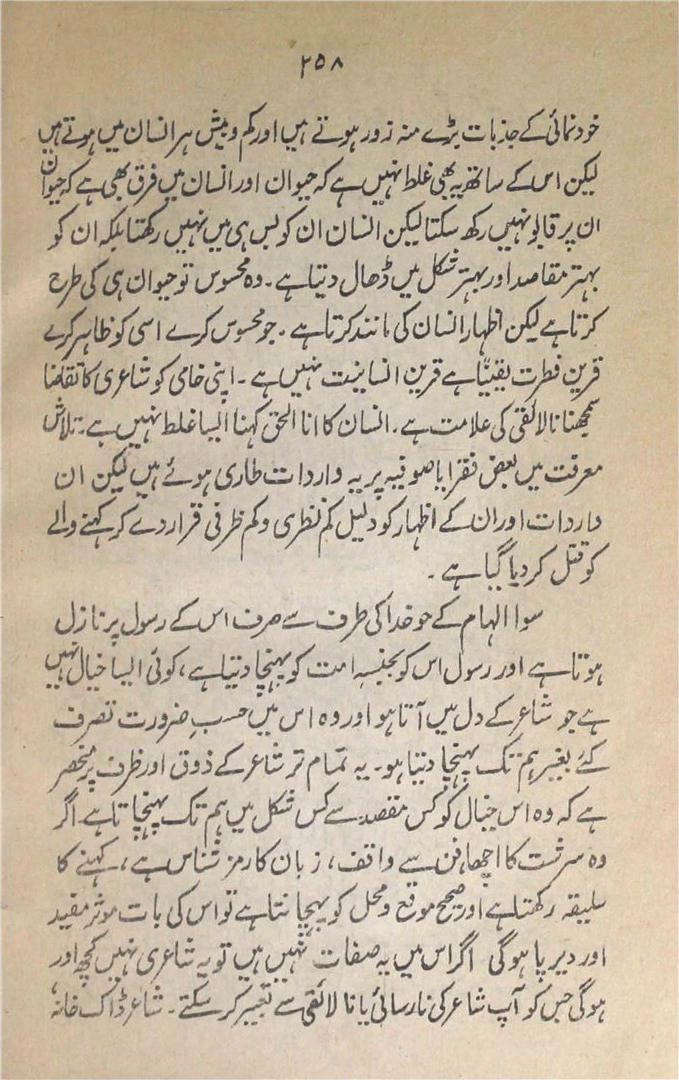 ۲۵۸
خودنمائی کے جذبات بڑے منہ زور ہوتے ہیں اور کم و بیش ہر انسان میں ہوتے ہیں
لیکن اس کے ساتھ یہ بھی غلط نہیں ہے کہ حیوان اور انسان میں فرق بھی ہے کہ حیوان
ان پر قابو نہیں رکھ سکتا لیکن انسان ان کو بس ہی میں نہیں رکھتا بلکہ ان کو
بہتر مقاصد اور بہتر شکل میں ڈھال دیتا ہے۔ وہ محسوس تو حیوان ہی کی طرح
کرتا ہے لیکن اظہار انسان کی مانند کرتا ہے۔ جو محسوس کرے اسی کو ظاہر کرے
قرینِ فطرت یقیناً ہے قرینِ انسانیت نہیں ہے۔ اپنی خامی کو شاعری کا تقاضا
سمجھنا نالائقی کی علامت ہے۔ انسان کا انا الحق کہنا ایسا غلط نہیں ہے۔ تلاش
معرفت میں بعض فقرا یا صوفیہ پر یہ واردات طاری ہوئے ہیں لیکن ان
واردات اور ان کے اظہار کو دلیل کم نظری و کم ظرفی قرار دے کر کہنے والے
کو قتل کر دیا گیا ہے۔
سوا الہام کے جو خدا کی طرف سے صرف اس کے رسول پر نازل
ہوتا ہے اور رسول اس کو بجنسہٖ امت کو پہنچا دیتا ہے، کوئی ایسا خیال نہیں
ہے جو شاعر کے دل میں آتا ہو اور وہ اس میں حسبِ ضرورت تصرف
کئے بغیر ہم تک پہنچا دیتا ہو۔ یہ تمام تر شاعر کے ذوق اور ظرف پر منحصر
ہے کہ وہ اس خیال کو کس مقصد سے کس شکل میں ہم تک پہنچاتا ہے اگر
وہ سرشت کا اچھا فن سے واقف، زبان کا رمز شناس ہے، کہنے کا
سلیقہ رکھتا ہے اور صحیح موقع و محل کو پہچانتا ہے تو اس کی بات موثر مفید
اور دیرپا ہوگی اگر اس میں یہ صفات نہیں ہیں تو یہ شاعری نہیں کچھ اور
ہوگی جس کو آپ شاعر کی نارسائی یا نالائقی سے تعبیر کر سکتے۔ شاعر ڈاک خانہ